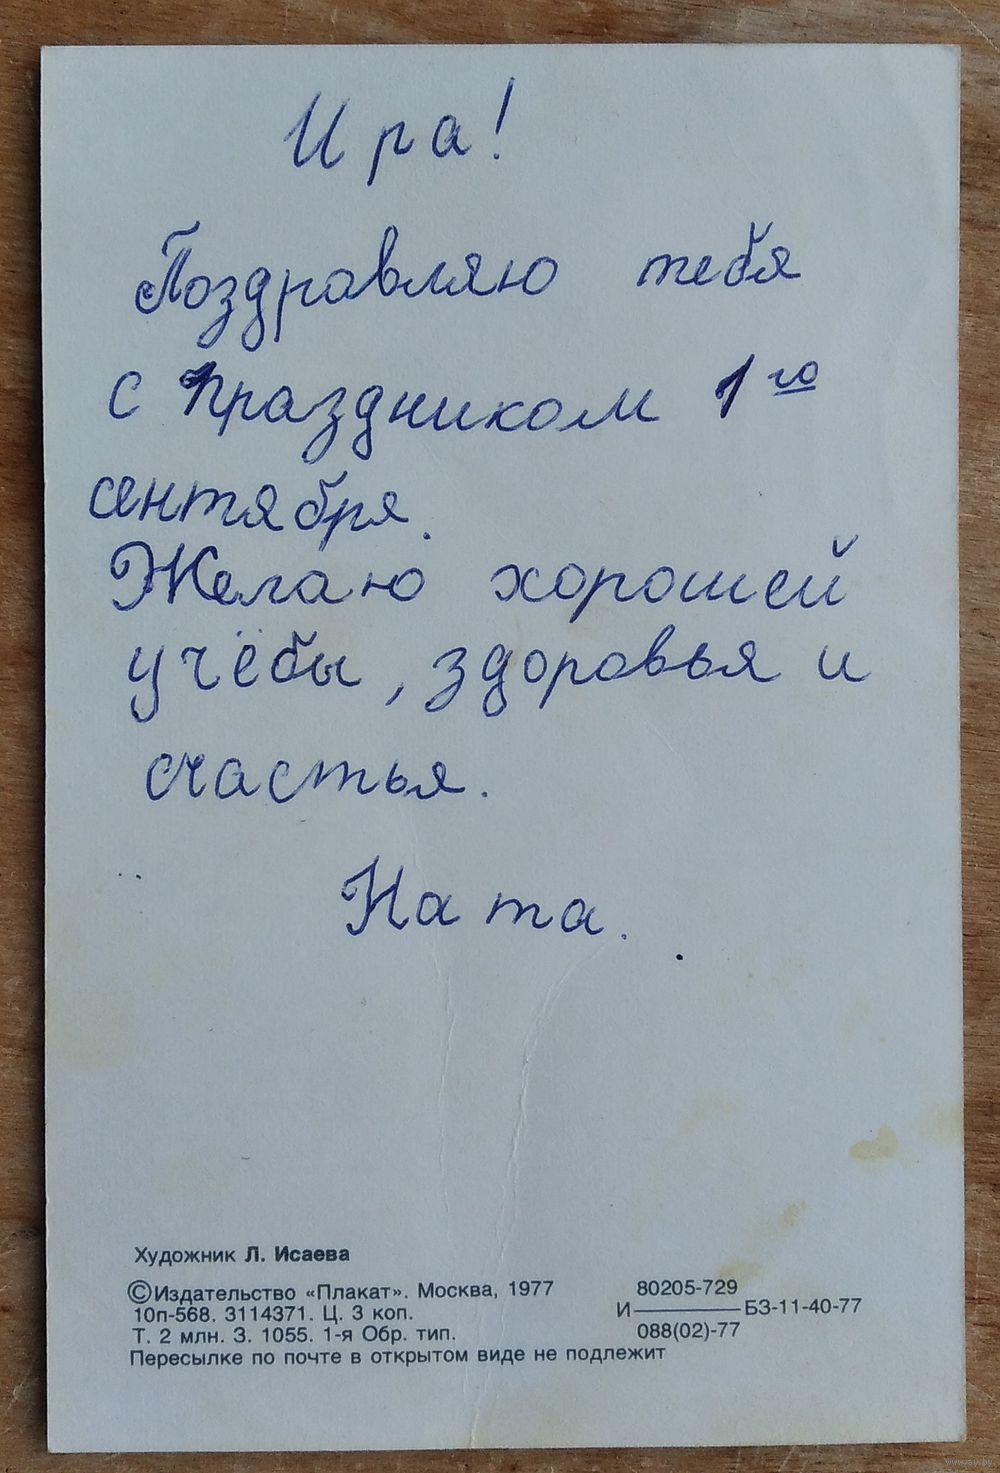 Ира!
Поздравляю тебя
с праздником 1го
сентября.
Желаю хорошей
учёбы, здоровья и
счастья.
Ната.
Художник Л. Исаева
©Издательство «Плакат». Москва, 1977
10п-568. 3114371. Ц. 3 коп.
Т. 2 млн. З. 1055. 1-я Обр. тип.
Пересылке по почте в открытом виде не подлежит
80205-729
И————БЗ-11-40-77
088(02)-77
www.ay.by